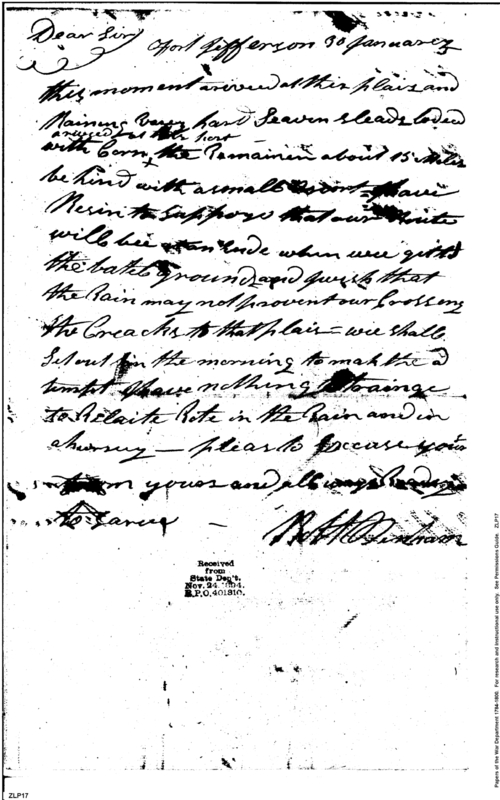 Dear Sir
Fort Jefferson 30 January
this moment arrived at this plais and
Raining very hard Seaven Sleads loded
arrived at this fort
with Corn + the Remainen about 15 Miles
behind with a small Escort I have
Resin to Suppose that our Route
will bee an Ende when wee gitt
the batel ground and I wish that
the Rain may not prevent our Crosseng
the Creacks to that plais – wee shall
Set out in the morning to mak the a
tempt I have nothing Strainge
to Relaite Rote in the Rain and in
a hurrey – pleas to Excuse your
yours and all ways Readey
to Sarve –
Received
from
State Dep't.
Nov. 24, 1894.
R.P.O. 401810.
Papers of the War Department 1784-1800. For research and instructional use only. See Permissions Guide. ZLP17
ZLP17